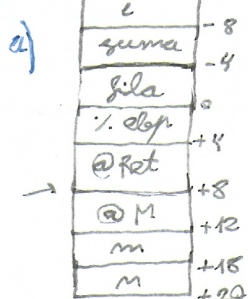 i
a) suma -8
-4
fila
0
% ebp
+4
@Ret
→ +8
@M
+12
m
+16
M
+20